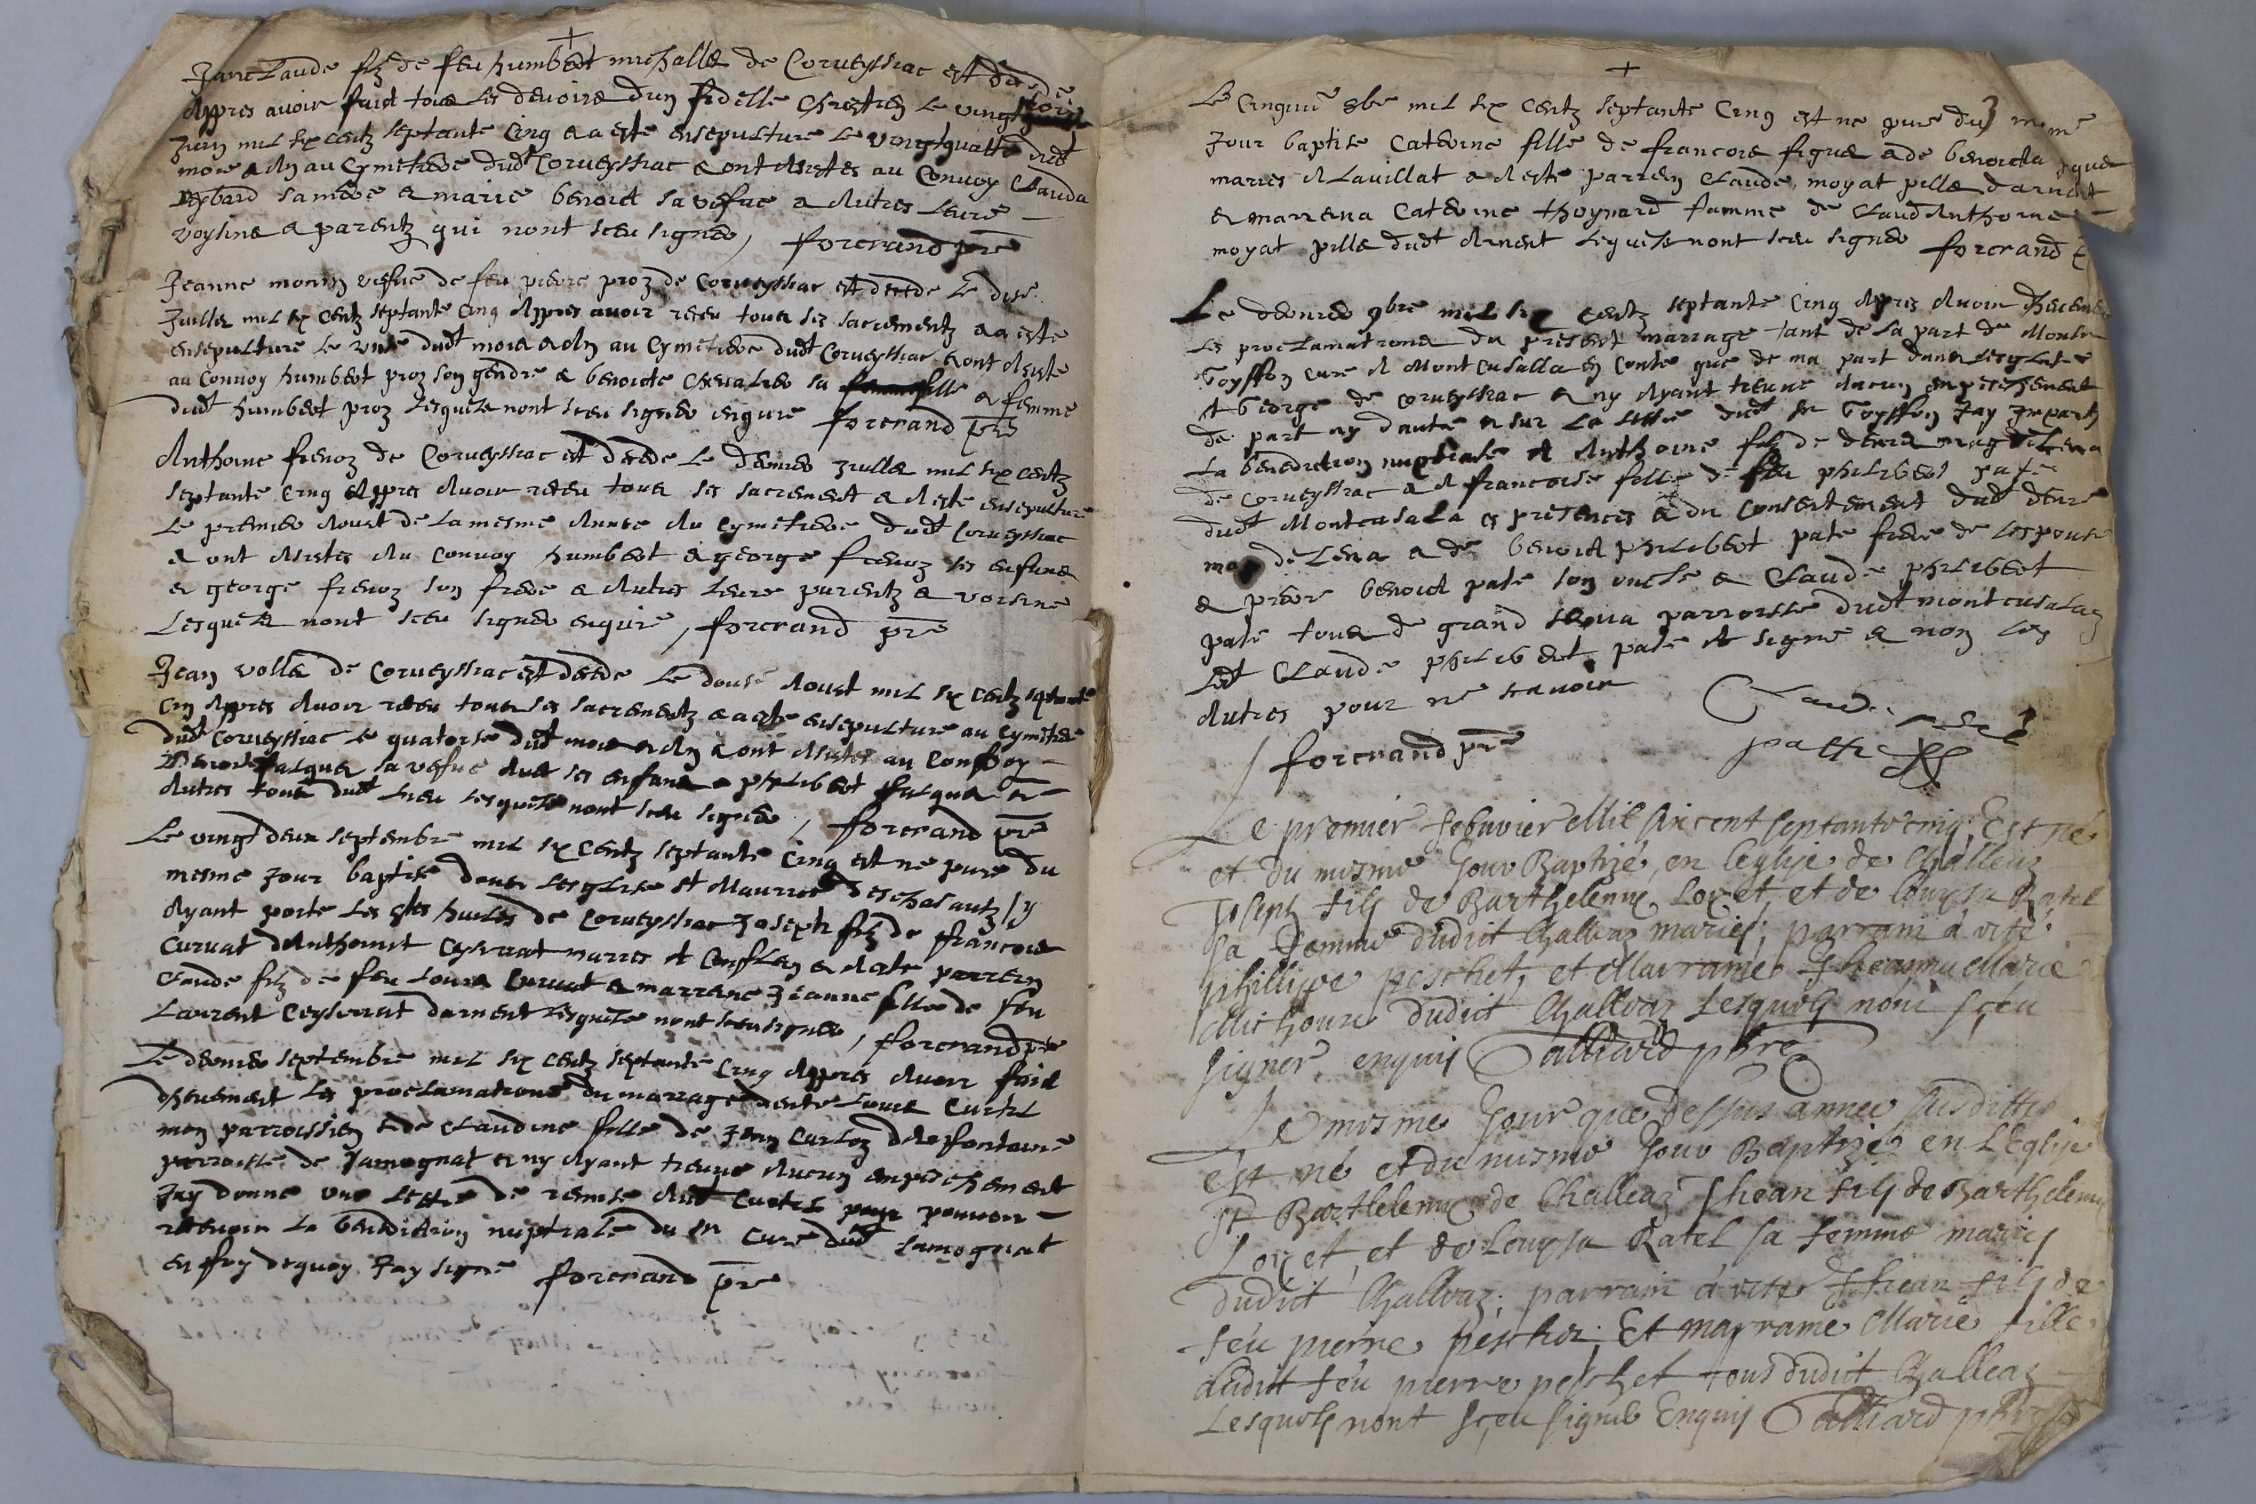 Janclaude filz de feu humbert michalle de Corveyssiac est decede
appres avoir faict tous les devoirs dun fidelle Chrestien le vingt trois
Juin mil six centz septante cinq & a este ensepulture le vingtquatre dudt
mois & an au Cymetiere dudt Corveyssiac & ont assistes au Convoy Clauda
Reybard sa mere & marie benoict sa vefue & autres leurs
voysins & parentz qui nont sceu signer, forcrand pre
Jeanne monin vefue de feu pierre proz de Corveyssiac est decede le dixe
Juillet mil six centz septante cinq appres avoir receu tous ses sacrementz & a este
ensepulture le unse dudt mois & an au Cymetiere dudt Corveyssiac & ont assiste
au Convoy humbert proz son gendre & benoiste Chevalier sa fille & femme
dudt humbert proz lesquels nont sceu signer enquis forcrand pre
Anthoine frenoz de Corveyssiac est decede le dernier Juillet mil six centz
septante cinq appres avoir receu tous ses sacrement & a este ensepulture
le premier aoust de la mesme annee au Cymetiere dudt Corveyssiac
& ont assistes au Convoy humbert & george frenoz ses enfans
& george frenoz son frere & autres leurs parentz & voisins
lesquels nont sceu signer enquis, forcrand pre
Jean volle de Corveyssiac est decede le douse aoust mil six centz septante
cin appres avoir receu tous ses sacrementz & a este ensepulture au Cymetiere
dudt Corveyssiac le quatorse dudt mois & an & ont assistes au Convoy
benoiste falque sa vefue avec ses enfans & philibert falque &
autres tous dudt lieu lesquels nont sceu signer, forcrand pre
Le vingt deux septembre mil six centz septante cinq est ne puis du
mesme jour baptise dans lesglise st Maurice deschasautz /y
ayant porte les stes huiles de Corveyssiac Joseph filz de francois
Curvat & Anthoinet Ceyserrat maries & Conflen & a este parrein
Claude filz de feu louis Curvat & marrene Jeanne fille de feu
Laurent Ceyserrat darnent lesquels nont sceu signer, forcrand pre
Le dernier septembre mil six centz septante cinq appres avoir faict
dheuement les proclamations du mariage dentre louis Curtil
mon parroissien & de Claudine fille de Jean Curloz de la fontaine
parroisse de Samognat & ny ayant treuve aucun empechement
Jay donne une lettre de remise audt Curtil pour pouvoir
recevoir la benediction nuptiale du sr Cure dudt samognat
en foy dequoy Jay signe forcrand pre
Le Cinquie 8bre mil six centz septante Cinq est ne puis du mesme
Jour baptise Caterine fille de francois figue & de benoicta
maries a Lavillat & a este parrein Claude moyat pille darnent
& marrena Caterine thoynard famme de Claud Anthoine
moyat pille dudt arnent lesquels nont sceu signer forcrand
Le dernier 9bre mil six centz septante Cinq appres avoir dheuement
les proclamations du present mariage tant de la part de Monsr
Goyffon cure a Montcusalla en Conte que de ma part dans lesglise
st George de Corveyssiac & ny ayant treuve aucun empeschement
de part ny dautre & sur la lettre dudt sr Goyffon Jay Imparty
la benediction nuptiale a Anthoine filz de denis
de Corveyssiac & a francoise fille de feu philibert pate
dudt Montcusala es presences & du consentement dudt denis
 & de benoict philibert pate frere de lespouse
& pierre benoict pate son oncle & Claude philibert
pate tous de grand serva parroisse dudt montcusalaz
ledt Claude philibert pate a signe & non les
autres pour ne scavoir
Claude
patte
forcrand pre
Le premier febuvier Mil six cent septante cinq, Est né
et du mesme Jour Baptizé, en leglise de Challeaz
Joseph fils de Barthelemy Loret, et de Louysa Ratel
sa femme dudict Challeaz mariés; parrain á vité
phillipe peschet, et Marraine Jheanna Marie
Michoure dudict Challeaz Lesquels nont sceu
signer enquis Talliard pbre
Le mesme Jour que dessus annee susditte
est né et du mesme Jour Baptizé en LEglise
st Barthelemy de Challeaz Jhean fils de Barthelemy
Loret, et de Louysa Ratel sa femme mariés
dudict Challeaz; parrain á vité Jhean fils de
feu pierre peschet; Et Marraine Marie fille
dudict feu pierre peschet tous dudict Challeaz
Lesquels nont sceu signer Enquis Talliard pbre